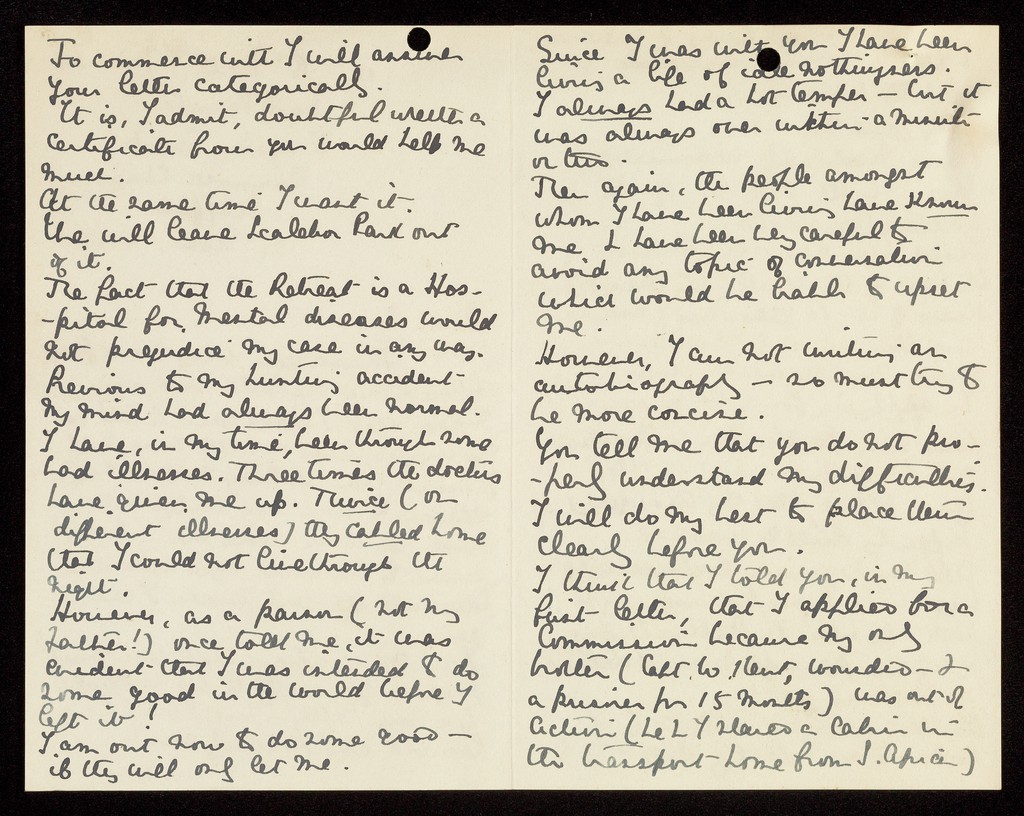 To commence with I will answer
your letter categorically.
It is, I admit, doubtful whether a
certificate from you would help me
much.
At the same time I want it.
We will leave Scalebor Park out
of it.
The fact that the Retreat is a Hos-
-pital for Mental diseases would
not prejudice my case in any way.
Previous to my hunting accident
my mind had always been normal.
I have, in my time, been through some
bad illnesses. Three times the doctors
have given me up. Twice (on
different illnesses) they cabled home
that I could not live through the
night.
However, as a parson (not my
father!) once told me, it was
evident that I was intended to do
some good in the world before I
left it!
I am out now to do some good—
if they will only let me.
Since I was with you I have been
living a life of idle nothingness.
I always had a hot temper — but it
was always over within a minute
or two.
Then again, the people amongst
whom I have been living have known
me & have been very careful to
avoid any topic of conversation
which would be liable to upset
me.
However, I am not writing an
autobiography — so must try to
be more concise.
You tell me that you do not pro-
-perly understand my difficulties.
I will do my best to place them
clearly before you.
I think that I told you, in my
first letter, that I applied for a
Commission because my only
brother (Capt. W. Kent, wounded — &
a prisoner for 15 months) was out of
action (he & I shared a cabin in
the transport home from S. Africa)